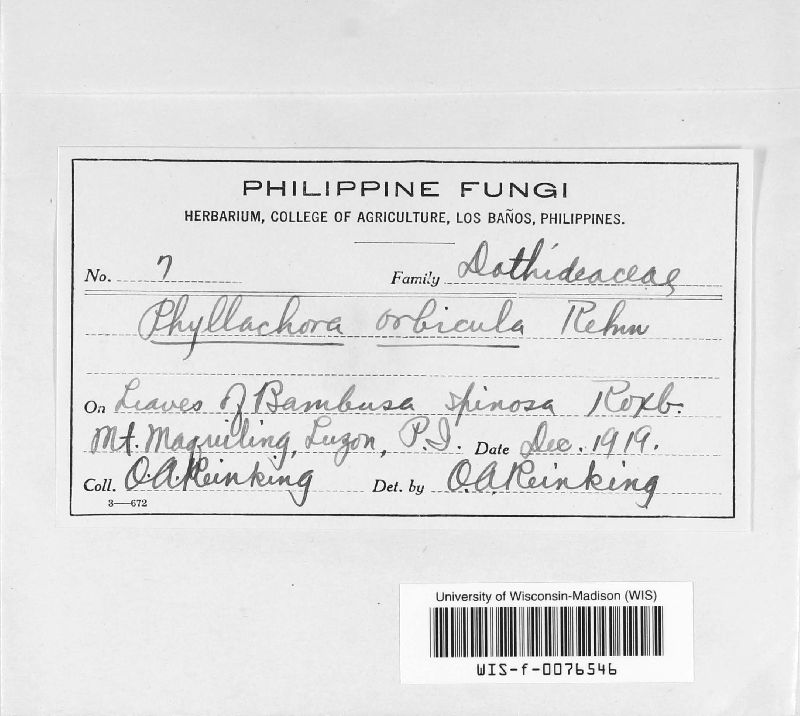 PHILIPPINE FUNGI
HERBARIUM, COLLEGE OF AGRICULTURE, LOS BAÑOS, PHILIPPINES.
No. 7 Family Dothideaceae
Phyllachora orbicula Rehm
On Leaves of Bambusa spinosa Roxb.
Mt. Maquiling, Luzon, P.I. Date Dec. 1919.
Coll. O.A. Reinking Det. by O.A. Reinking
3—672
University of Wisconsin-Madison (WIS)
WIS-f-0076546